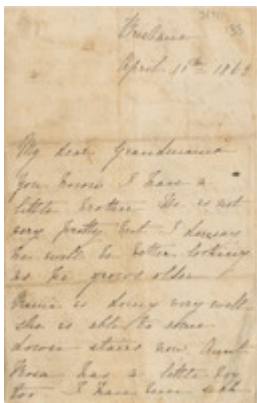 April 10th 186
My dear Grandmama
you know I have a
little brother He is not
very pretty but I
he will be better looking
as he grows older
is doing very well
she is able to come
down stairs now Aunt
has a little boy
too I have been